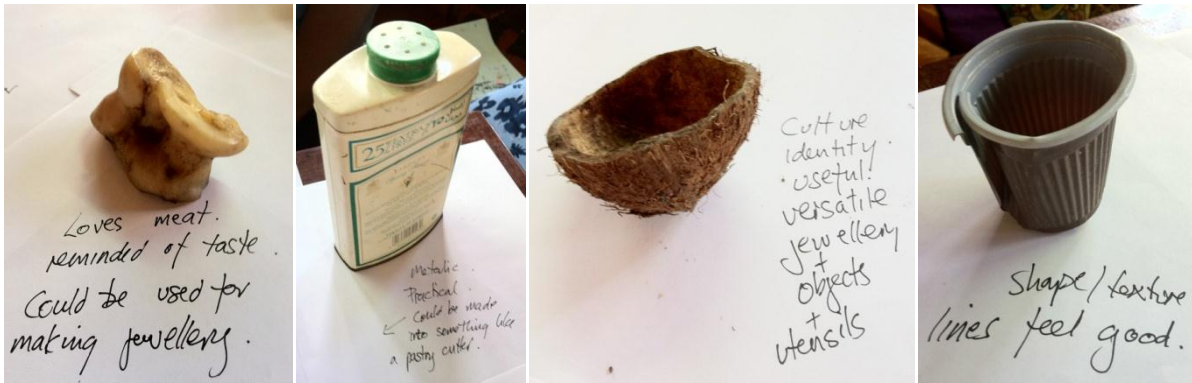 Loves meat.
reminded of taste.
Could be used for
making jewellery.
25
Metalic.
Practical.
Could be made
into something like
a pastry cutter.
Culture
identity.
useful!
versatile
jewellery
+
objects
+
utensils
shape/texture
lines feel good.